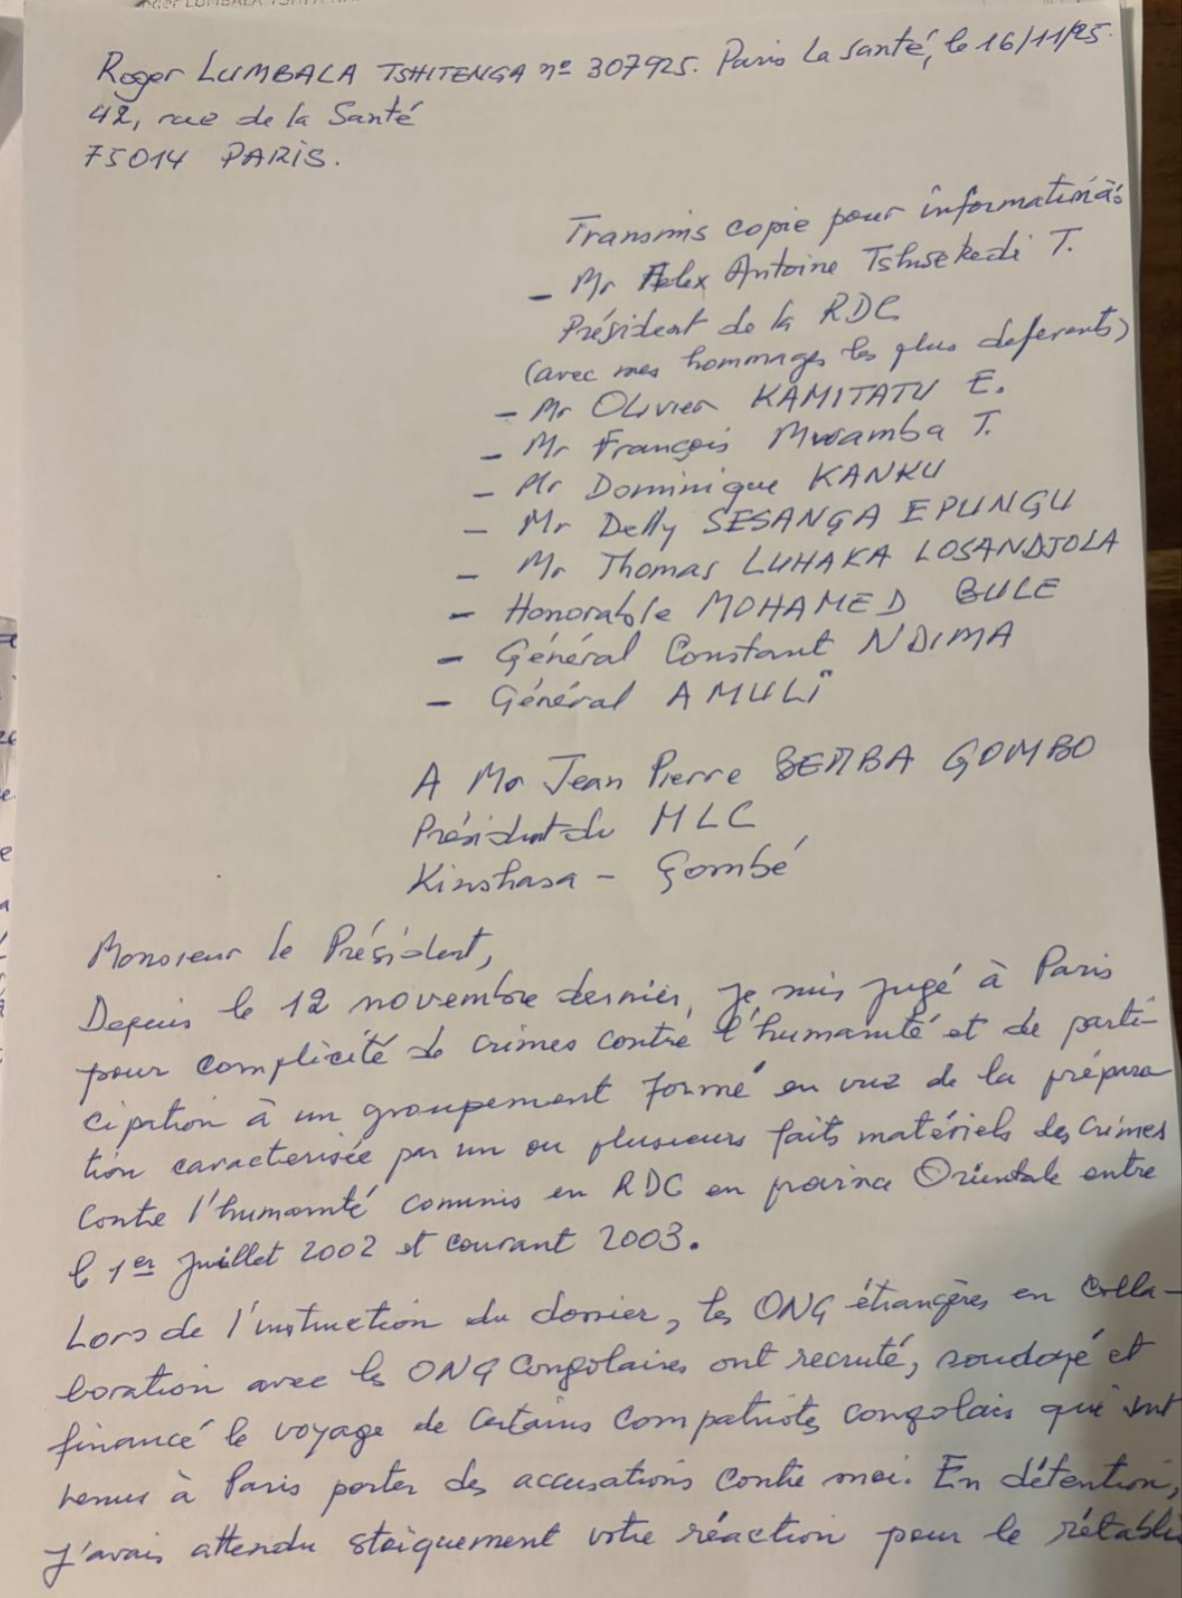 Roger LUMBALA TSHITENGA nº 307925. Paris La Santé, le 16/11/25.
42, rue de la Santé
75014 PARIS.
Transmis copie pour information à:
- Mr Felix Antoine Tshisekedi T.
Président de la RDC
(avec mes hommages les plus deferents)
- Mr Olivier KAMITATU E.
- Mr François Mwamba T.
- Mr Dominique KANKU
- Mr Delly SESANGA EPUNGU
- Mr Thomas LUHAKA LOSANDJOLA
- Honorable MOHAMED BULE
- Général Constant NDIMA
- Général AMULI
A Mr Jean Pierre BEMBA GOMBO
Président du MLC
Kinshasa - Gombé
Monsieur le Président,
Depuis le 12 novembre dernier, je suis jugé à Paris
pour complicité de crimes contre l'humanité et de parti-
cipation à un groupement formé en vue de la prépara
tion caracterisée par un ou plusieurs faits matériels des crimes
contre l'humanité commis en RDC en province Orientale entre
le 1er Juillet 2002 et courant 2003.
Lors de l'instruction du dossier, les ONG étrangères en colla-
boration avec les ONG Congolaises ont recruté, soudoyé et
financé le voyage de certains compatriotes congolais qui sont
venus à Paris porter des accusations contre moi. En détention,
J'avais attendu stoïquement votre réaction pour le rétabli